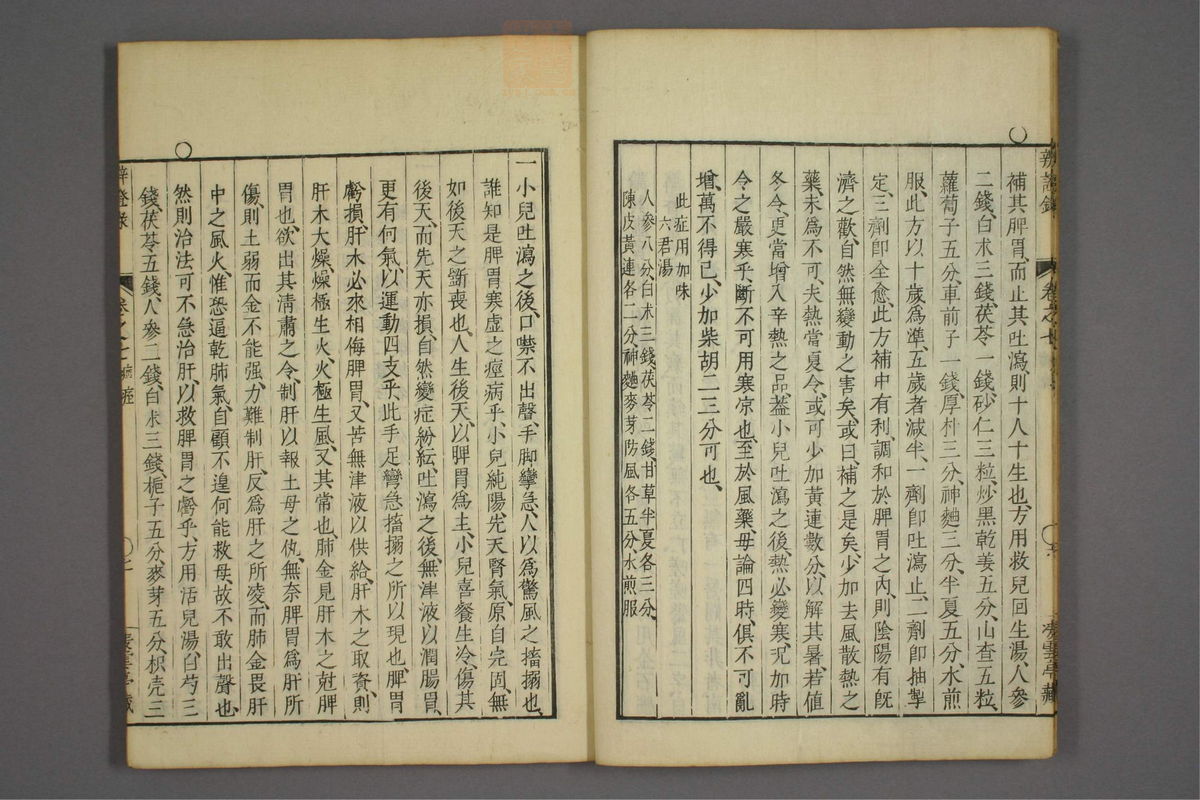 辨證錄
卷之七
補其脾胃、而止其吐瀉、則十人十生也、方用救兒回生湯、人參
二錢、白朮三錢、茯苓一錢、砂仁三粒、炒黑乾姜五分、山查五粒、
蘿蔔子五分、車前子一錢、厚朴三分、神麯三分、半夏五分、水煎
服、此方以十歲爲準、五歲者減半、一劑卽吐瀉止、二劑卽抽掣
定、三劑卽全愈、此方補中有利、調和於脾胃之內、則陰陽有旣
濟之歡、自然無變動之害矣、或曰、補之是矣、少加去風散熱之
藥、未爲不可、夫熱當夏令、或可少加黃連數分、以解其暑、若值
冬令、更當增入辛熱之品、葢小兒吐瀉之後、熱必變寒、况加時
令之嚴寒乎、斷不可用寒凉也、至於風藥、毋論四時、俱不可亂
增、萬不得已、少加柴胡二三分可也、
此症用加味
六君湯
人參八分、白朮三錢、茯苓二錢、甘草半夏各三分、
陳皮黃連各二分、神麯麥芽防風各五分、水煎服
一小兒吐瀉之後、口噤不出聲、手脚攣急、人以爲驚風之搐搦也、
誰知是脾胃寒虛之痙病乎、小兒純陽、先天腎氣、原自完固、無
如後天之斲喪也、人生後天、以脾胃爲主、小兒喜餐生冷、傷其
後天、而先天亦損、自然變症紛紜、吐瀉之後、無津液以潤腸胃、
更有何氣、以運動四支乎、此手足彎急搐搦之所以現也、脾胃
虧損、肝木必來相侮、脾胃又苦無津液以供給、肝木之取資、則
肝木大燥、燥極生火、火極生風、又其常也、肺金見肝木之尅脾
胃也、欲出其淸肅之令、制肝以報土母之仇、無奈脾胃爲肝所
傷、則土弱而金不能强、力難制肝、反爲肝之所凌、而肺金畏肝
中之風火、惟恐逼乾肺氣、自顧不遑、何能救母、故不敢出聲也、
然則治法可不急治肝、以救脾胃之虧乎、方用活兒湯、白芍三
錢、茯苓五錢、人參二錢、白朮三錢、梔子五分、麥芽五分、枳壳三
辨證錄
卷之七
痙痓